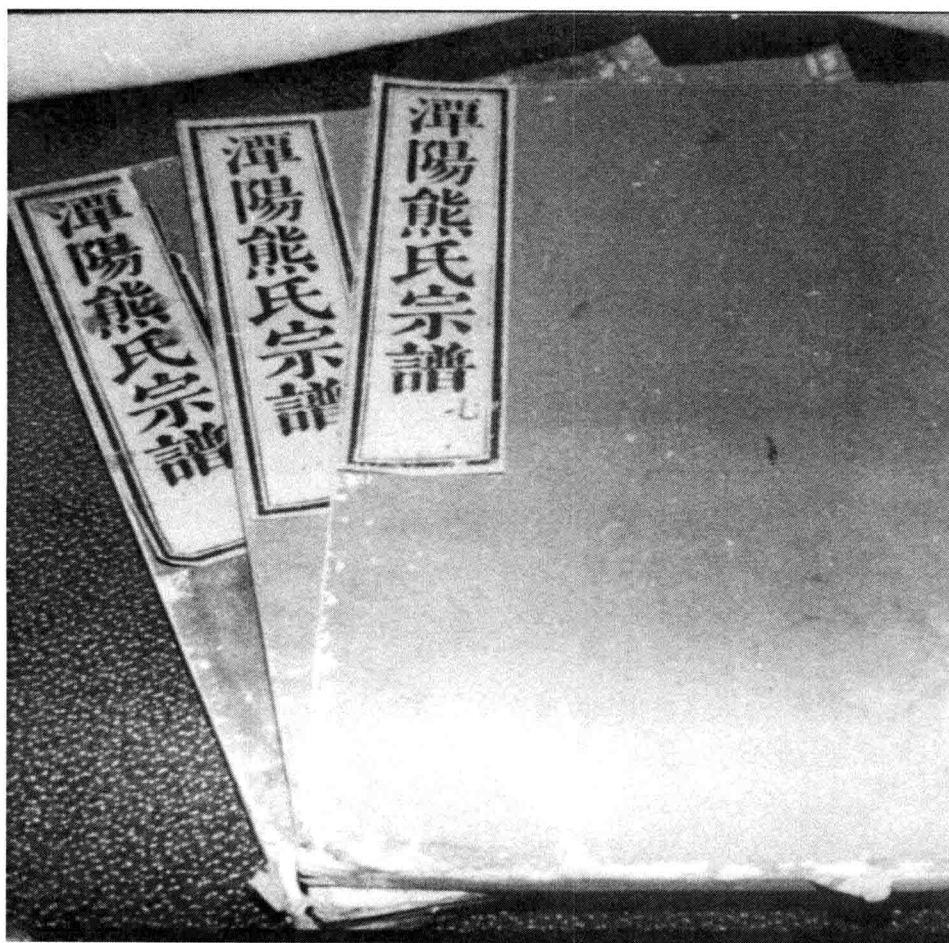 潭陽熊氏宗譜
七
潭陽熊氏宗譜
潭陽熊氏宗譜